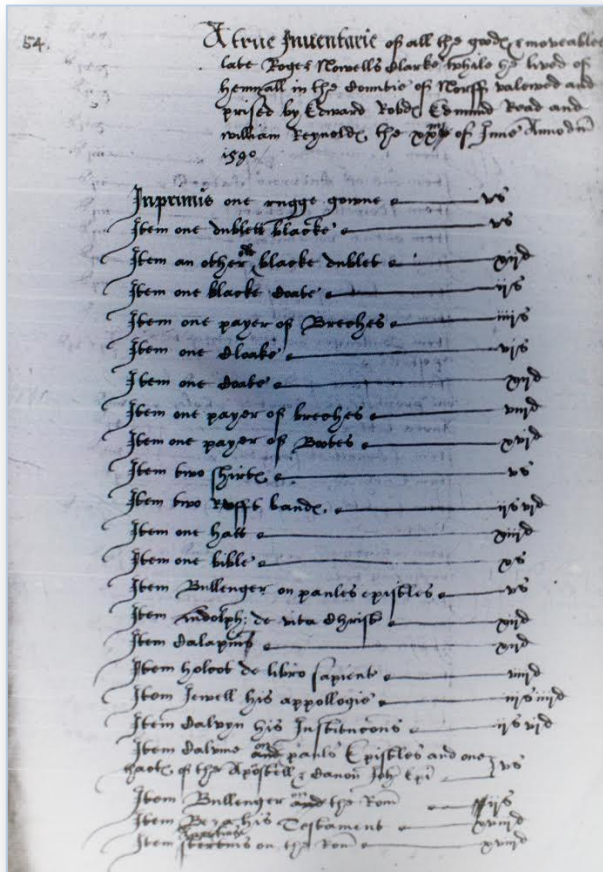 54.
A true Inventarie of all the goodes & moveables
late Roger Nowells Clarke while he lived of
hemnall in the Countie of Norff valewed and
prised by Edward Robdes Edmund Read and
william Reynoldes the of June Anno dni
1590
Inprimis one rugge gowne vs
Item one dublett blacke vs
Item an other blacke dublet xijd
Item one blacke Coate ijs
Item one payer of Breches iiijs
Item one Cloake vjs
Item one Coate xijd
Item one payer of breches viijd
Item one payer of Bootes xvjd
Item two shirtes vs
Item two Rufft bandes ijs vjd
Item one hatt xiijd
Item one bible xs
Item Bullenger on paules epistles vs
Item de vita Christi xijd
Item Calapius xijd
Item holcot de libro sapient viijd
Item Jewell his appologie iijs iiijd
Item Calvyn his Institucons ijs vjd
Item Calvine on paules Epistles and one
of the Apostells & Canon Joh Epi vs
Item Bullenger on the Rom ijs
Item Beza his Testament xviijd
Item on the Rom xviijd